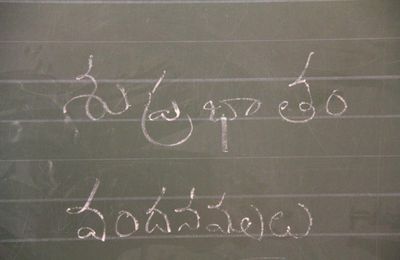 సుప్రభాతం
వందనములు